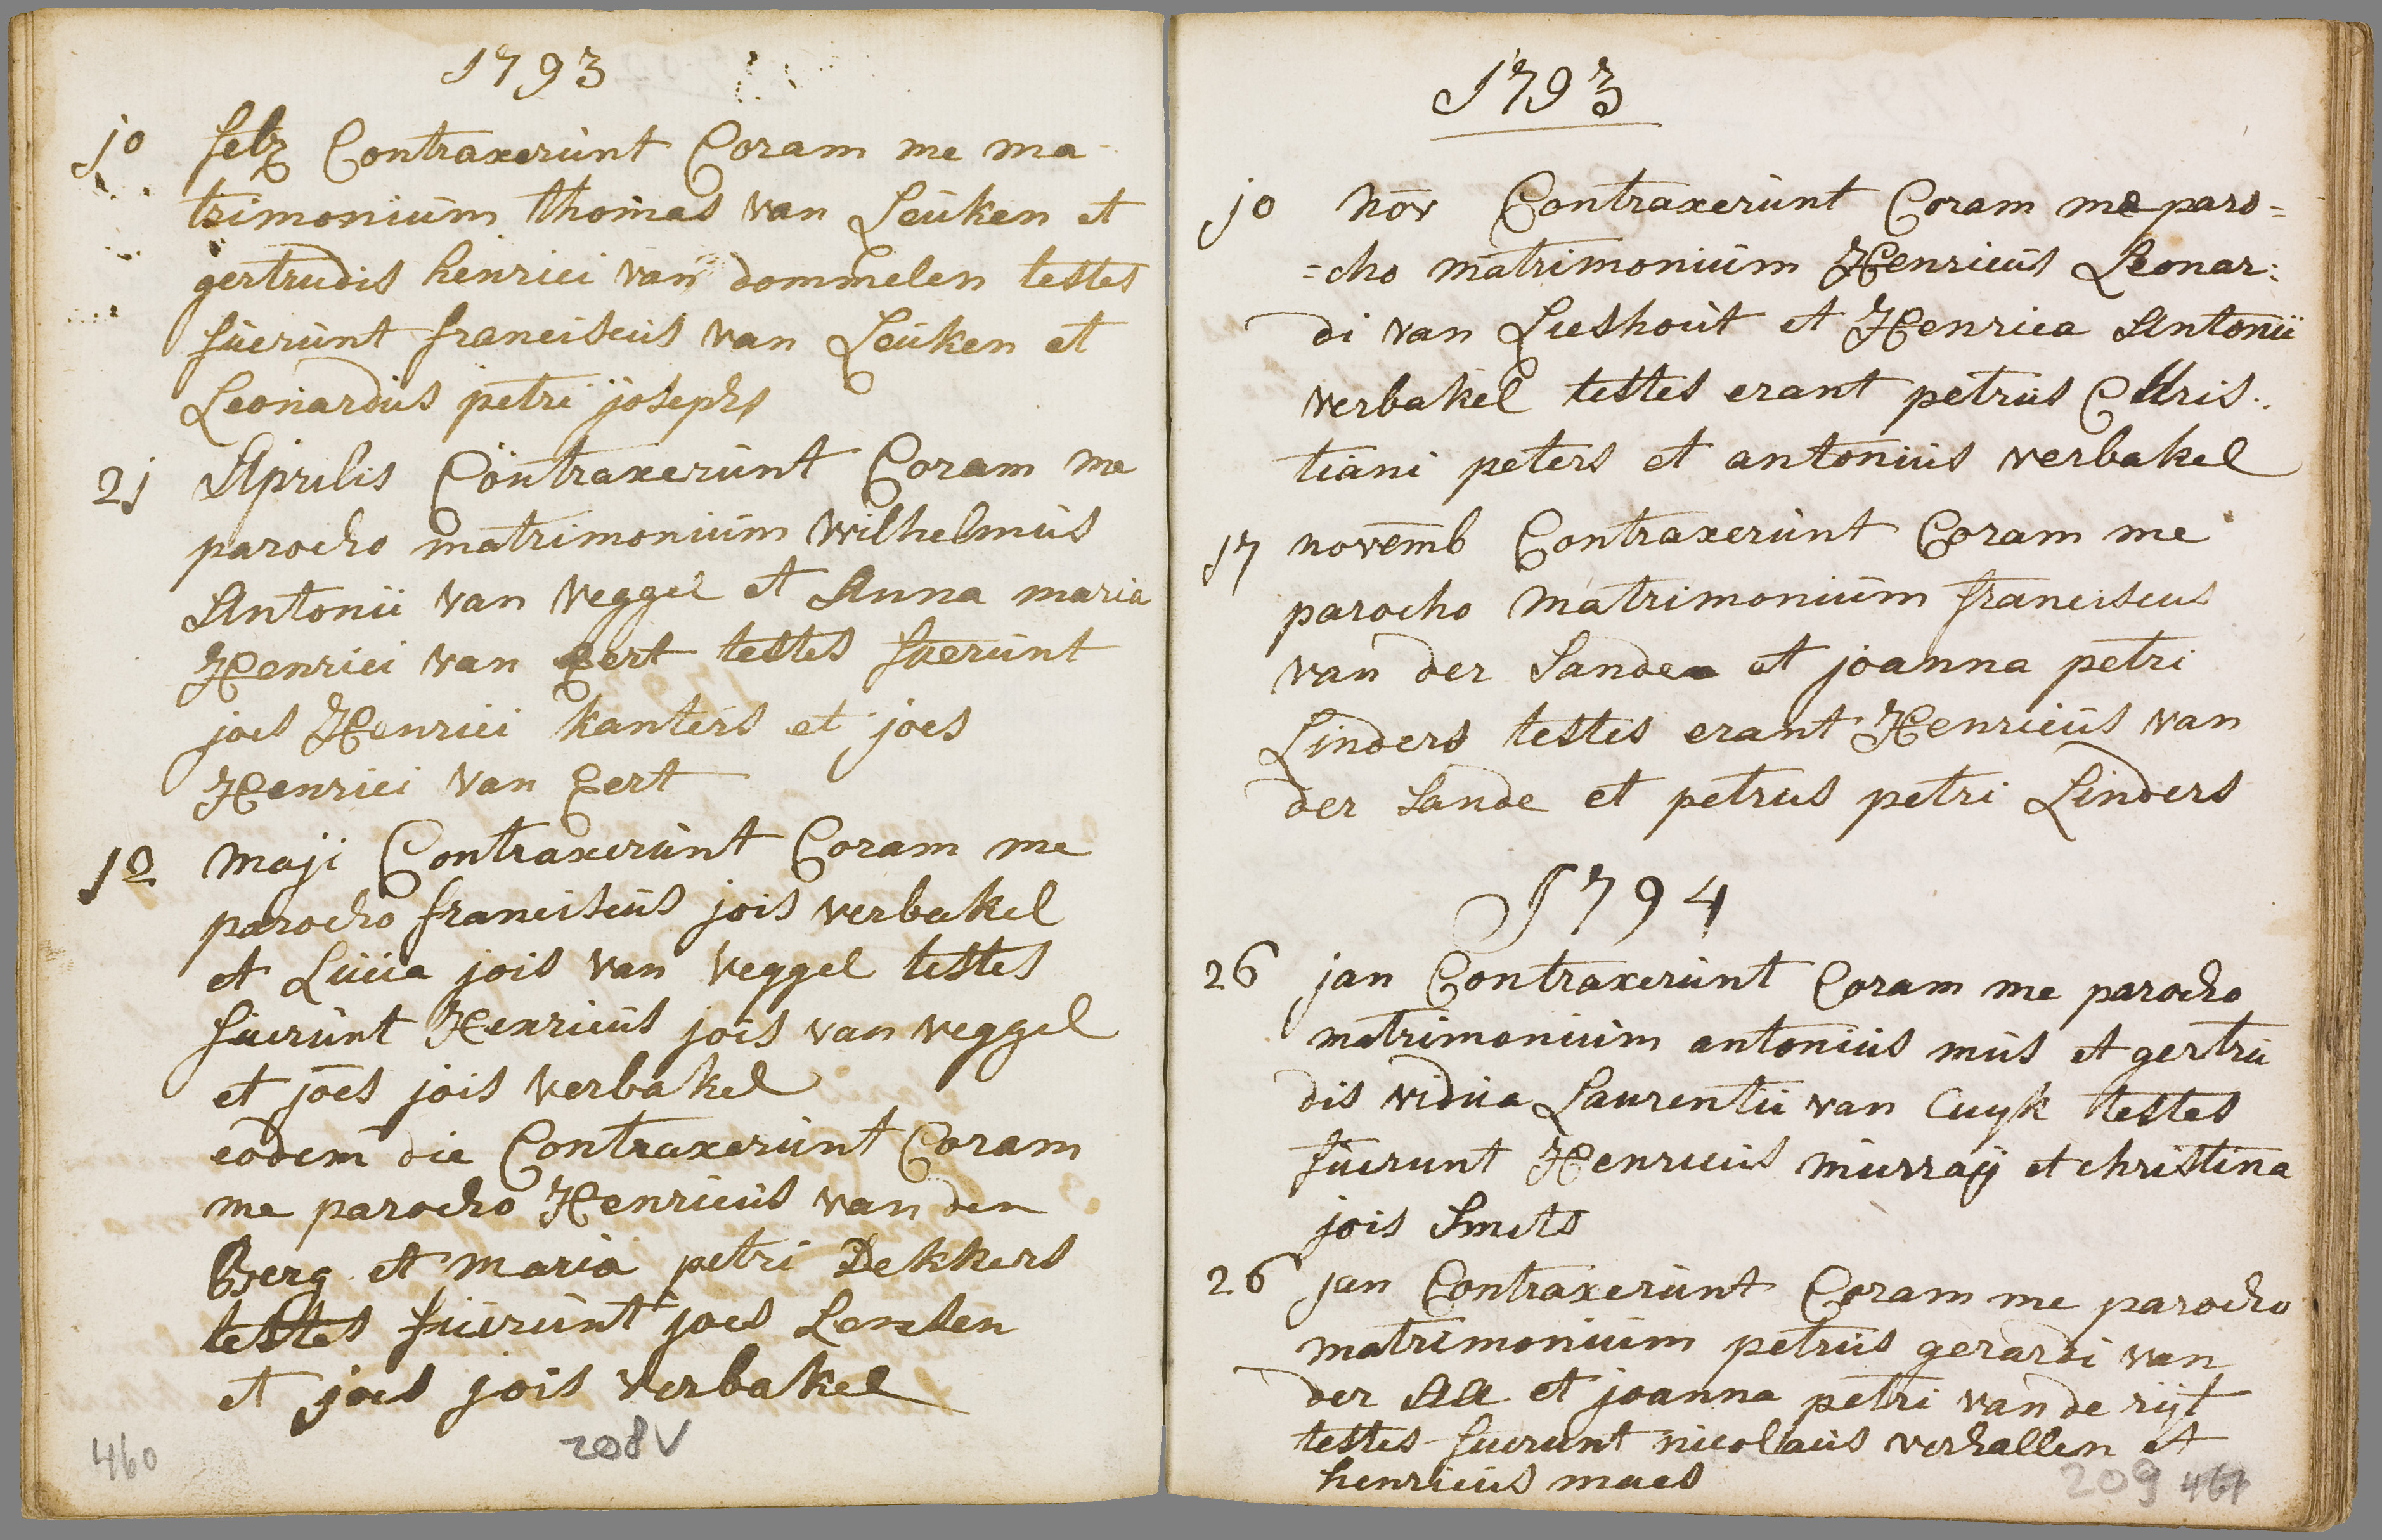 1793
10 febr Contraxerunt Coram me ma-
trimonium thomas van Leuken et
gertrudis henrici van dommelen testes
fuerunt franciscus van Leuken et
Leonardus petri josephs
21 Aprilis Contraxerunt Coram me
parocho matrimonium wilhelmus
Antonii van veggel et Anna maria
Henrici van Eert testes fuerunt
joes Henrici kanters et joes
Henrici van Eert
12 maji Contraxerunt Coram me
parocho franciscus jois verbakel
et Lucia jois van veggel testes
fuerunt Henricus jois van veggel
et joes jois verbakel
eodem die Contraxerunt Coram
me parocho Henricus van den
Berg et maria petri Dekkers
testes fuerunt joes Lensen
et joes jois verbakel
460 208V
1793
10 nov Contraxerunt Coram me paro=
=cho matrimonium Henricus Leonar:
di van Lieshout et Henrica Antonii
verbakel testes erant petrus Chris:
tiani peters et antonius verbakel
17 novemb Contraxerunt Coram me
parocho matrimonium franciscus
van der Sande et joanna petri
Linders testes erant Henricus van
der Sande et petrus petri Linders
1794
26 jan Contraxerunt Coram me parocho
matrimonium antonius mus et gertru
dis vidua Laurentii van Cuyk testes
fuerunt Henricus murraÿ et christina
jois Smits
26 jan Contraxerunt Coram me parocho
matrimonium petrus gerardi van
der AA et joanna petri van de rijt
testes fuerunt nicolaus verhallen et
henricus maes
209 461